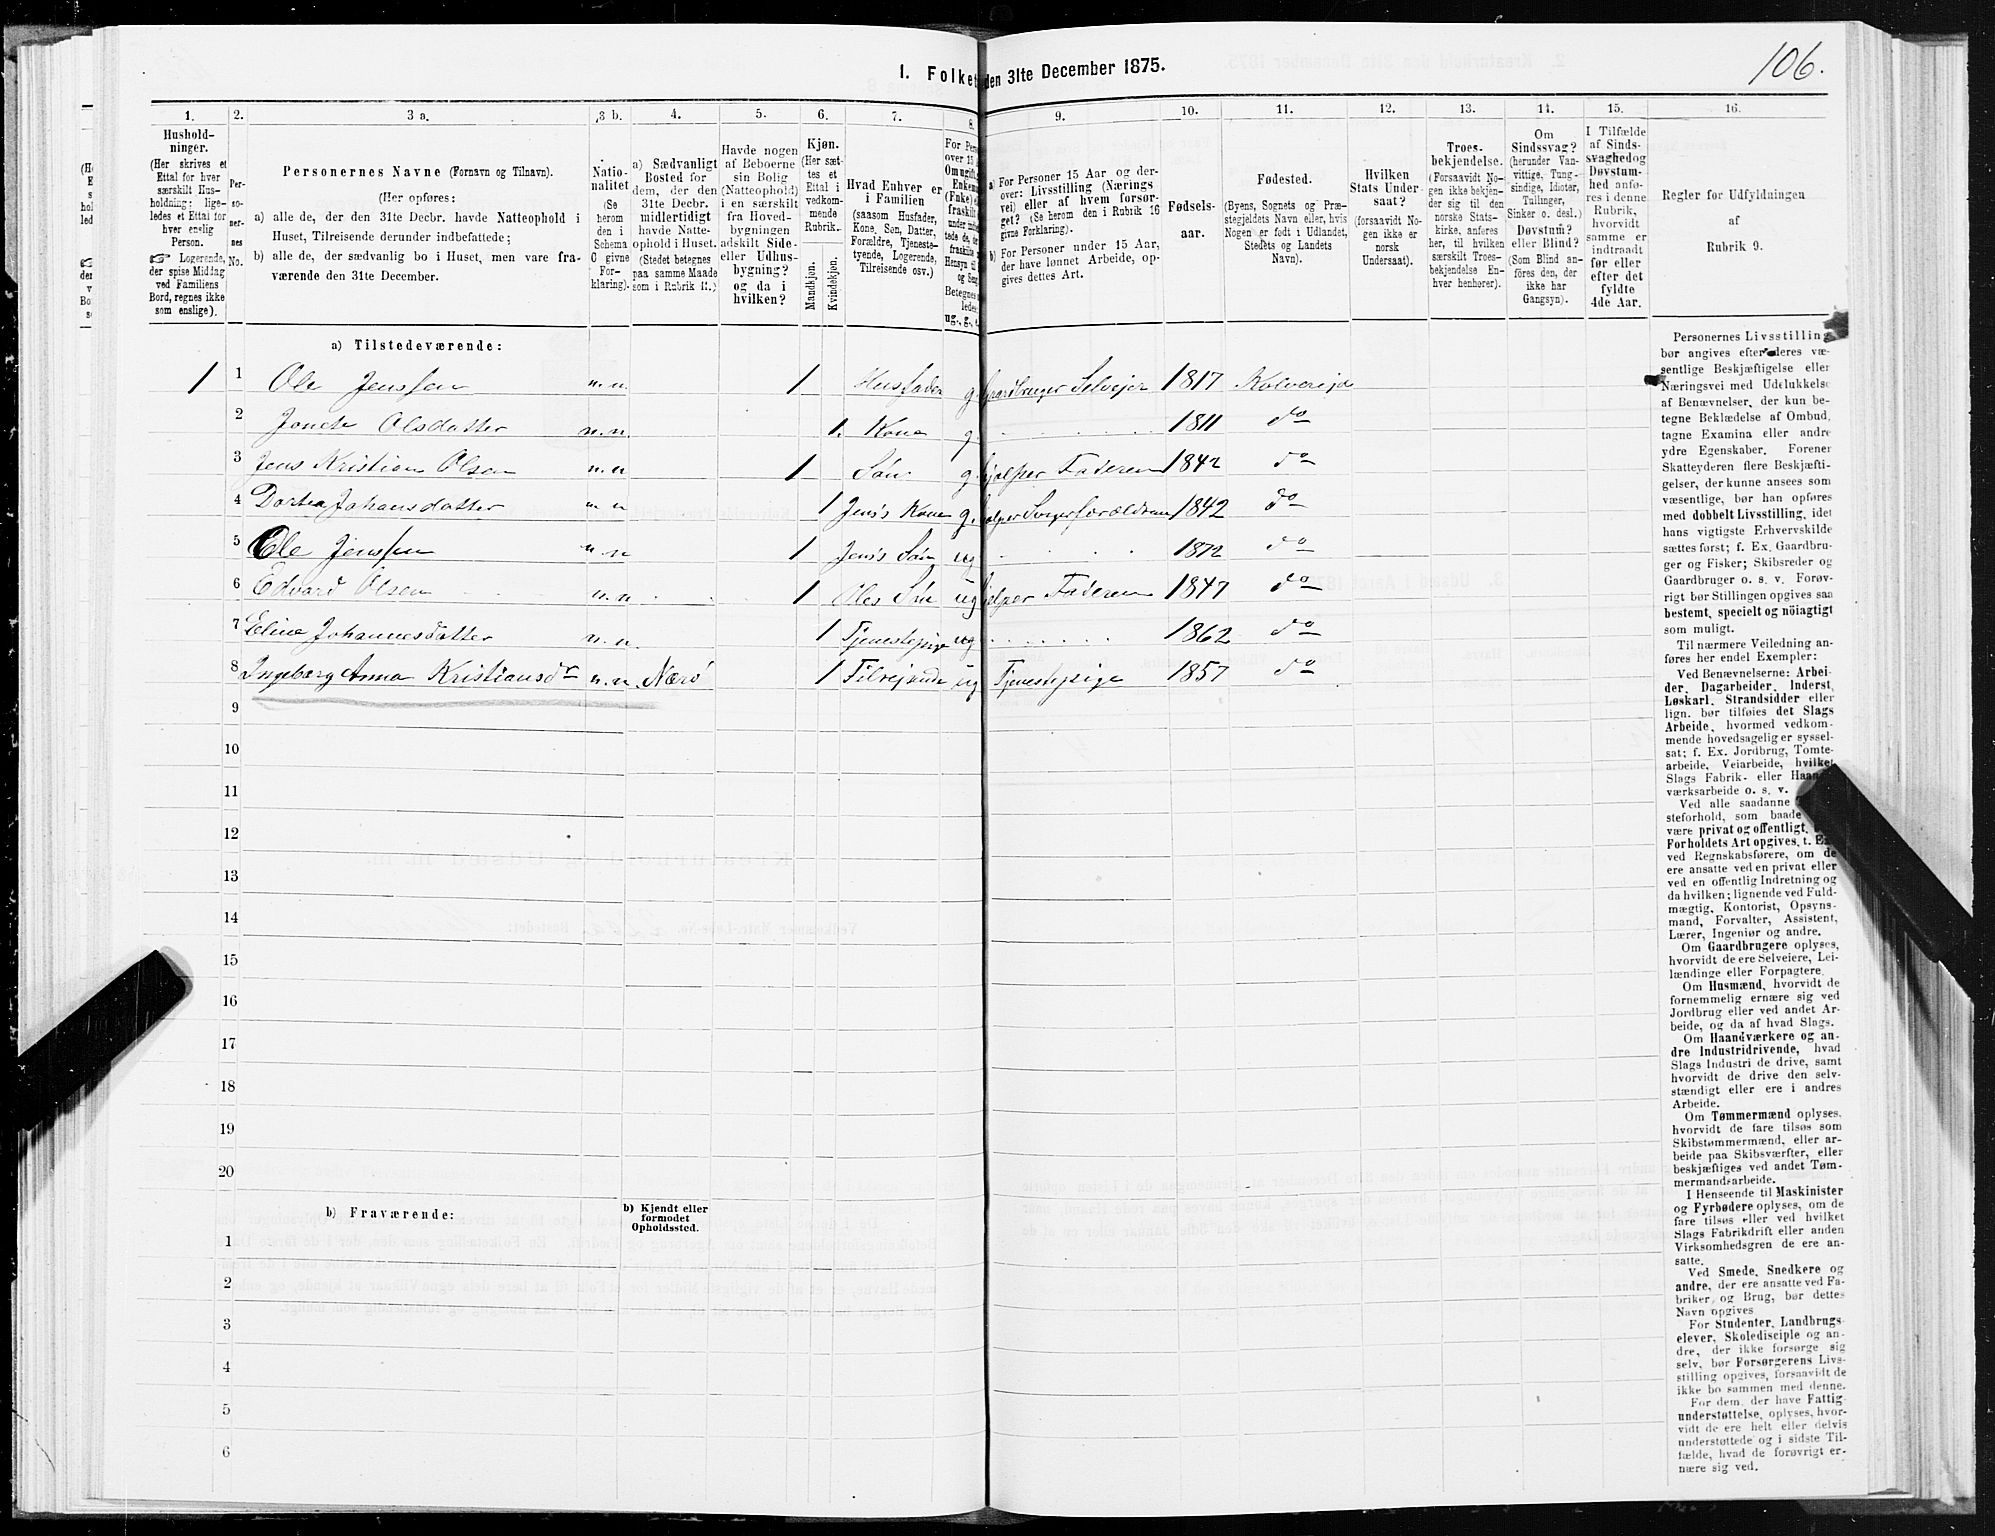 106.
I. Folket den 31te December 1875.
1. 2. 3 a. 3 b. 4. 5. 6. 7. 8. 9. 10. 11. 12. 13. 14. 15. 16.
Hushold-
ninger.
(Her skrives et
Ettal for hver
særskilt Hus-
holdning; lige-
ledes et Ettal for
hver enslig
Person.
☞ Logerende,
der spise Middag
ved Familiens
Bord, regnes ikke
som enslige).
Per-
so-
ner-
nes
No.
Personernes Navne (Fornavn og Tilnavn).
(Her opføres:
a) alle de, der den 31te Decbr. havde Natteophold i
Huset, Tilreisende derunder indbefattede;
b) alle de, der sædvanlig bo i Huset, men vare fra-
værende den 31te December.
Natio-
nalitet
(Se
herom
den i
Schema
C givne
For-
klaring).
a) Sædvanligt
Bosted for
dem, der den
31te Decbr.
midlertidigt
havde Natte-
ophold i Huset.
(Stedet betegnes
paa samme Maade
som i Rubrik 11.)
Havde nogen
af Beboerne
sin Bolig
(Natteophold)
i en særskilt
fra Hoved-
bygningen
adskilt Side-
eller Udhus-
bygning?
og da i
hvilken?
Kjøn.
(Her sæt-
tes et
Ettal i
vedkom-
mende
Rubrik.
Mandkjøn.
Kvindekjøn.
Hvad Enhver er
i Familien
(saasom Husfader,
Kone, Søn, Datter,
Forældre, Tjeneste-
tyende, Logerende,
Tilreisende osv.)
For Pers
over 15
Om ugift,
Enkem
(Enke) e
fraskilt
under
tede de,
fraskilte
Hensyn til
og Seng
Betegnes
ledes
ug., g., e.
a) For Personer 15 Aar og der-
over: Livsstilling (Nærings
vei) eller af hvem forsør-
get? (Se herom den i Rubrik 16
givne Forklaring).
b) For Personer under 15 Aar,
der have lønnet Arbeide, op-
gives dettes Art.
Fødsels-
aar.
Fødested.
(Byens, Sognets og Præ-
stegjeldets Navn eller, hvis
Nogen er født i Udlandet,
Stedets og Landets
Navn).
Hvilken
Stats Under-
saat?
(forsaavidt No-
gen ikke er
norsk
Undersaat).
Troes-
bekjendelse.
(Forsaavidt No-
gen ikke bekjen-
der sig til den
norske Stats-
kirke, anføres
her, til hvilken
særskilt Troes-
bekjendelse En-
hver henhører).
Om
Sindssvag?
(herunder Van-
vittige, Tung-
sindige, Idioter,
Tullinger,
Sinker o. desl.)
Døvstum?
eller Blind?
(Som Blind an-
føres den, der
ikke har
Gangsyn).
I Tilfælde
af Sinds-
svaghedog
Døvstum-
hed anfø-
res i denne
Rubrik,
hvorvidt
samme er
indtraadt
før eller
efter det
fyldte
4de Aar.
Regler for Udfyldningen
af
Rubrik 9.
a) Tilstedeværende:
1 1 Ole Jenssen n.n. 1 Husfader g. Gaardbruger Selveier 1817 Kolvereid
2 Jonete Olsdatter n.n. 1. Kone g. 1811 do
3 Jens Kristian Olsen n.n 1 Søn g. hjelper Faderen 1842 do
4 Dortea Johansdatter n.n 1 Jens's Kone g. hjelper Svigerforældrene 1842 do
5 Ole Jenssen n.n 1 Jens's Søn ug 1872 do
6 Edvard Olsen n.n 1 Oles Søn ug hjelper Faderen 1847 do
7 Eline Johannesdatter n.n. 1 Tjenestepige ug 1862 do
8 Ingeborg Anna Kristiansdr n.n. Nærø 1 Tilreisende ug Tjenestepige 1857 do
9
10
11
12
13
14
15
16
17
18
19
20
b) Fraværende:
b) Kjendt eller
formodet
Opholdssted.
1
2
3
4
5
6
Personernes Livsstilling
bør angives efter deres væ-
sentlige Beskjæftigelse eller
Næringsvei med Udelukkelse
af Benævnelser, der kun be-
tegne Beklædelse af Ombud,
tagne Examina eller andre
ydre Egenskaber. Forener
Skatteyderen flere Beskjæfti-
gelser, der kunne ansees som
væsentlige, bør han opføres
med dobbelt Livsstilling, idet
hans vigtigste Erhvervskilde
sættes først; f. Ex. Gaardbru-
ger og Fisker; Skibsreder og
Gaardbruger o. s. v. Forøv-
rigt bør Stillingen opgives saa
bestemt, specielt og nøiagtigt
som muligt.
Til nærmere Veiledning an-
føres her endel Exempler:
Ved Benævnelserne: Arbei-
der, Dagarbeider, Inderst,
Løskarl, Strandsidder eller
lign. bør tilføies det Slags
Arbeide, hvormed vedkom-
mende hovedsagelig er syssel-
sat; f. Ex. Jordbrug, Tomte-
arbeide, Veiarbeide, hvilket
Slags Fabrik- eller Haand-
værksarbeide o. s. v.
Ved alle saadanne
steforhold, som baade
være privat og offentligt,
Forholdets Art opgives, t. Ex.
ved Regnskabsførere, om de
ere ansatte ved en privat eller
ved en offentlig Indretning og
da hvilken; lignende ved Fuld-
mægtig, Kontorist, Opsyns-
mand, Forvalter, Assistent,
Lærer, Ingeniør og andre.
Om Gaardbrugere oplyses,
hvorvidt de ere Selveiere, Lei-
lændinge eller Forpagtere.
Om Husmænd, hvorvidt de
fornemmelig ernære sig ved
Jordbrug eller ved andet Ar-
beide, og da af hvad Slags.
Om Haandværkere og an-
dre Industridrivende, hvad
Slags Industri de drive, samt
hvorvidt de drive den selv-
stændigt eller ere i andres
Arbeide.
Om Tømmermænd oplyses,
hvorvidt de fare tilsøs som
Skibstømmermænd, eller ar-
beide paa Skibsværfter, eller
beskjæftiges ved andet Tøm-
mermandsarbeide.
I Henseende til Maskinister
og Fyrbødere oplyses, om de
fare tilsøs eller ved hvilket
Slags Fabrikdrift eller anden
Virksomhedsgren de ere an-
satte.
Ved Smede, Snedkere og
andre, der ere ansatte ved Fa-
briker og Brug, bør dettes
Navn opgives
For Studenter, Landbrugs-
elever, Skoledisciple og an-
dre, der ikke forsørge sig
selv, bør Forsørgerens Livs-
stilling opgives, forsaavidt de
ikke bo sammen med denne.
For dem, der have Fattig-
understøttelse, oplyses, hvor-
vidt de ere helt eller delvis
understøttede og i sidste Til-
fælde, hvad de forøvrigt er-
nære sig ved.